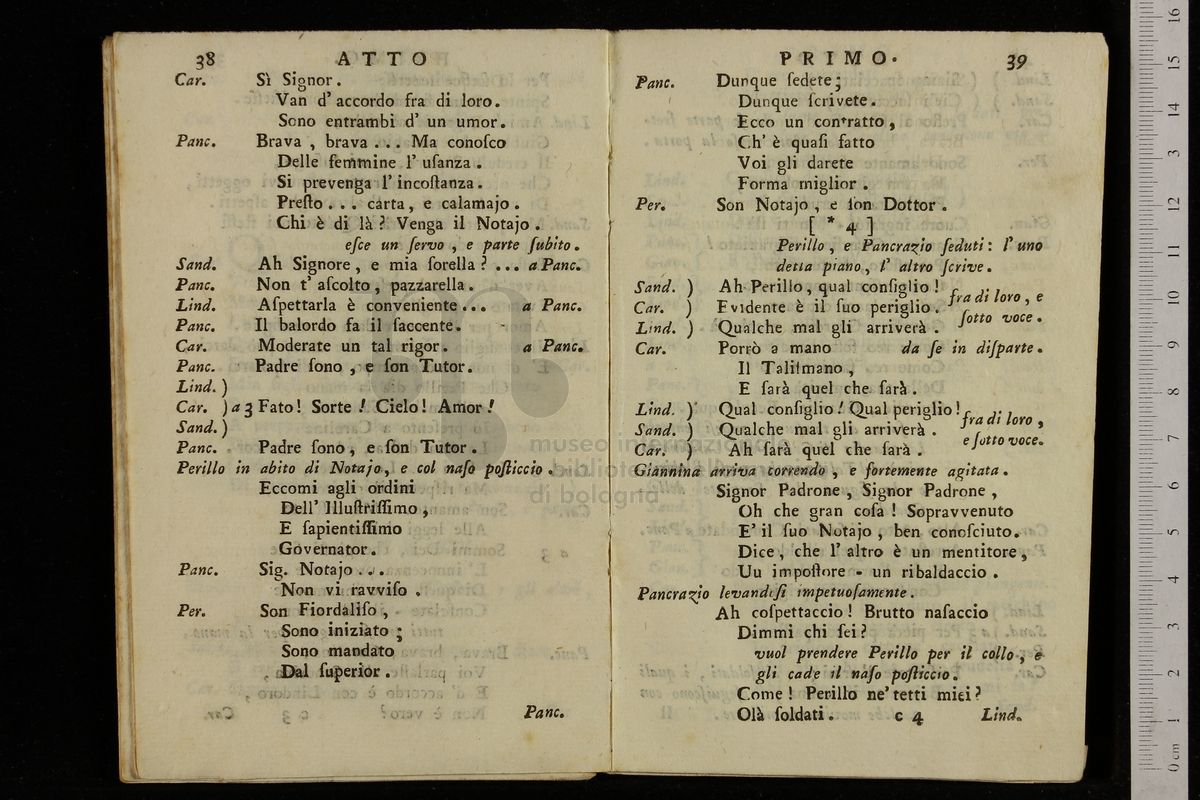 38 ATTO
Car. Sì Signor.
Van d'accordo fra di loro.
Sono entrambi d' un umor.
Panc. Brava, brava... Ma conoſco
Delle femmine l' uſanza.
Si prevenga l' incoſtanza.
Preſto... carta, e calamajo.
Chi è di là? Venga il Notajo.
eſce un ſervo, e parte ſubito.
Sand. Ah Signore, e mia ſorella?... a Panc.
Panc. Non t' aſcolto, pazzarella.
Lind. Aſpettarla è conveniente... a Panc.
Panc. Il balordo fa il ſaccente.
Car. Moderate un tal rigor. a Panc.
Panc. Padre ſono, e ſon Tutor.
Lind. )
Car. ) a 3 Fato! Sorte! Cielo! Amor!
Sand. )
Panc. Padre ſono, e ſon Tutor.
Perillo in abito di Notajo, e col naſo poſticcio.
Eccomi agli ordini
Dell' Illuſtriſſimo,
E ſapientiſſimo
Governator.
Panc. Sig. Notajo...
Non vi ravviſo.
Per. Son Fiordaliſo,
Sono iniziato;
Sono mandato
Dal ſuperior.
Panc.
PRIMO. 39
Panc. Dunque ſedete;
Dunque ſcrivete.
Ecco un contratto,
Ch' è quaſi fatto
Voi gli darete
Forma miglior.
Per. Son Notajo, e ſon Dottor.
[ * 4 ]
Perillo, e Pancrazio ſeduti: l' uno
detta piano, l' altro ſcrive.
Sand. ) Ah Perillo, qual conſiglio!
Car. ) Evidente è il ſuo periglio. fra di loro, e
Lind. ) Qualche mal gli arriverà. ſotto voce.
Car. Porrò a mano da ſe in diſparte.
Il Taliſmano,
E ſarà quel che ſarà.
Lind. ) Qual conſiglio! Qual periglio! fra di loro,
Sand. ) Qualche mal gli arriverà. e ſotto voce.
Car. ) Ah ſarà quel che ſarà.
Giannina arriva correndo, e fortemente agitata.
Signor Padrone, Signor Padrone,
Oh che gran coſa! Sopravvenuto
E' il ſuo Notajo, ben conoſciuto.
Dice, che l' altro è un mentitore,
Uu impoſtore - un ribaldaccio.
Pancrazio levandoſi impetuoſamente.
Ah coſpettaccio! Brutto naſaccio
Dimmi chi ſei?
vuol prendere Perillo per il collo, e
gli cade il naſo poſticcio.
Come! Perillo ne' tetti miei?
Olà ſoldati. c 4 Lind.
museo internazionale
biblioteca della musica
di bologna